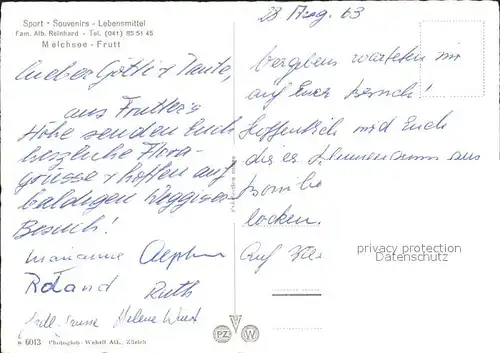 Sport - Souvenirs - Lebensmittel
Fam. Alb. Reinhard - Tel. (041) 85 51 45
Melchsee - Frutt
Lieber Götti + Tante,
aus Frutter's
Höhe senden Euch
herzliche Flora-
grüsse + hoffen auf
baldigen Weggiser
Besuch!
Marianne
Roland Ruth
Helene
28 Aug. 63
Vergebens warteten wir
auf Euer Besuch!
Hoffentlich wird Euch
dieses Blumen aus
locken.
Auf
privacy protection
Datenschutz
6013 Photoglob-Wehrli AG., Zürich
PZ W